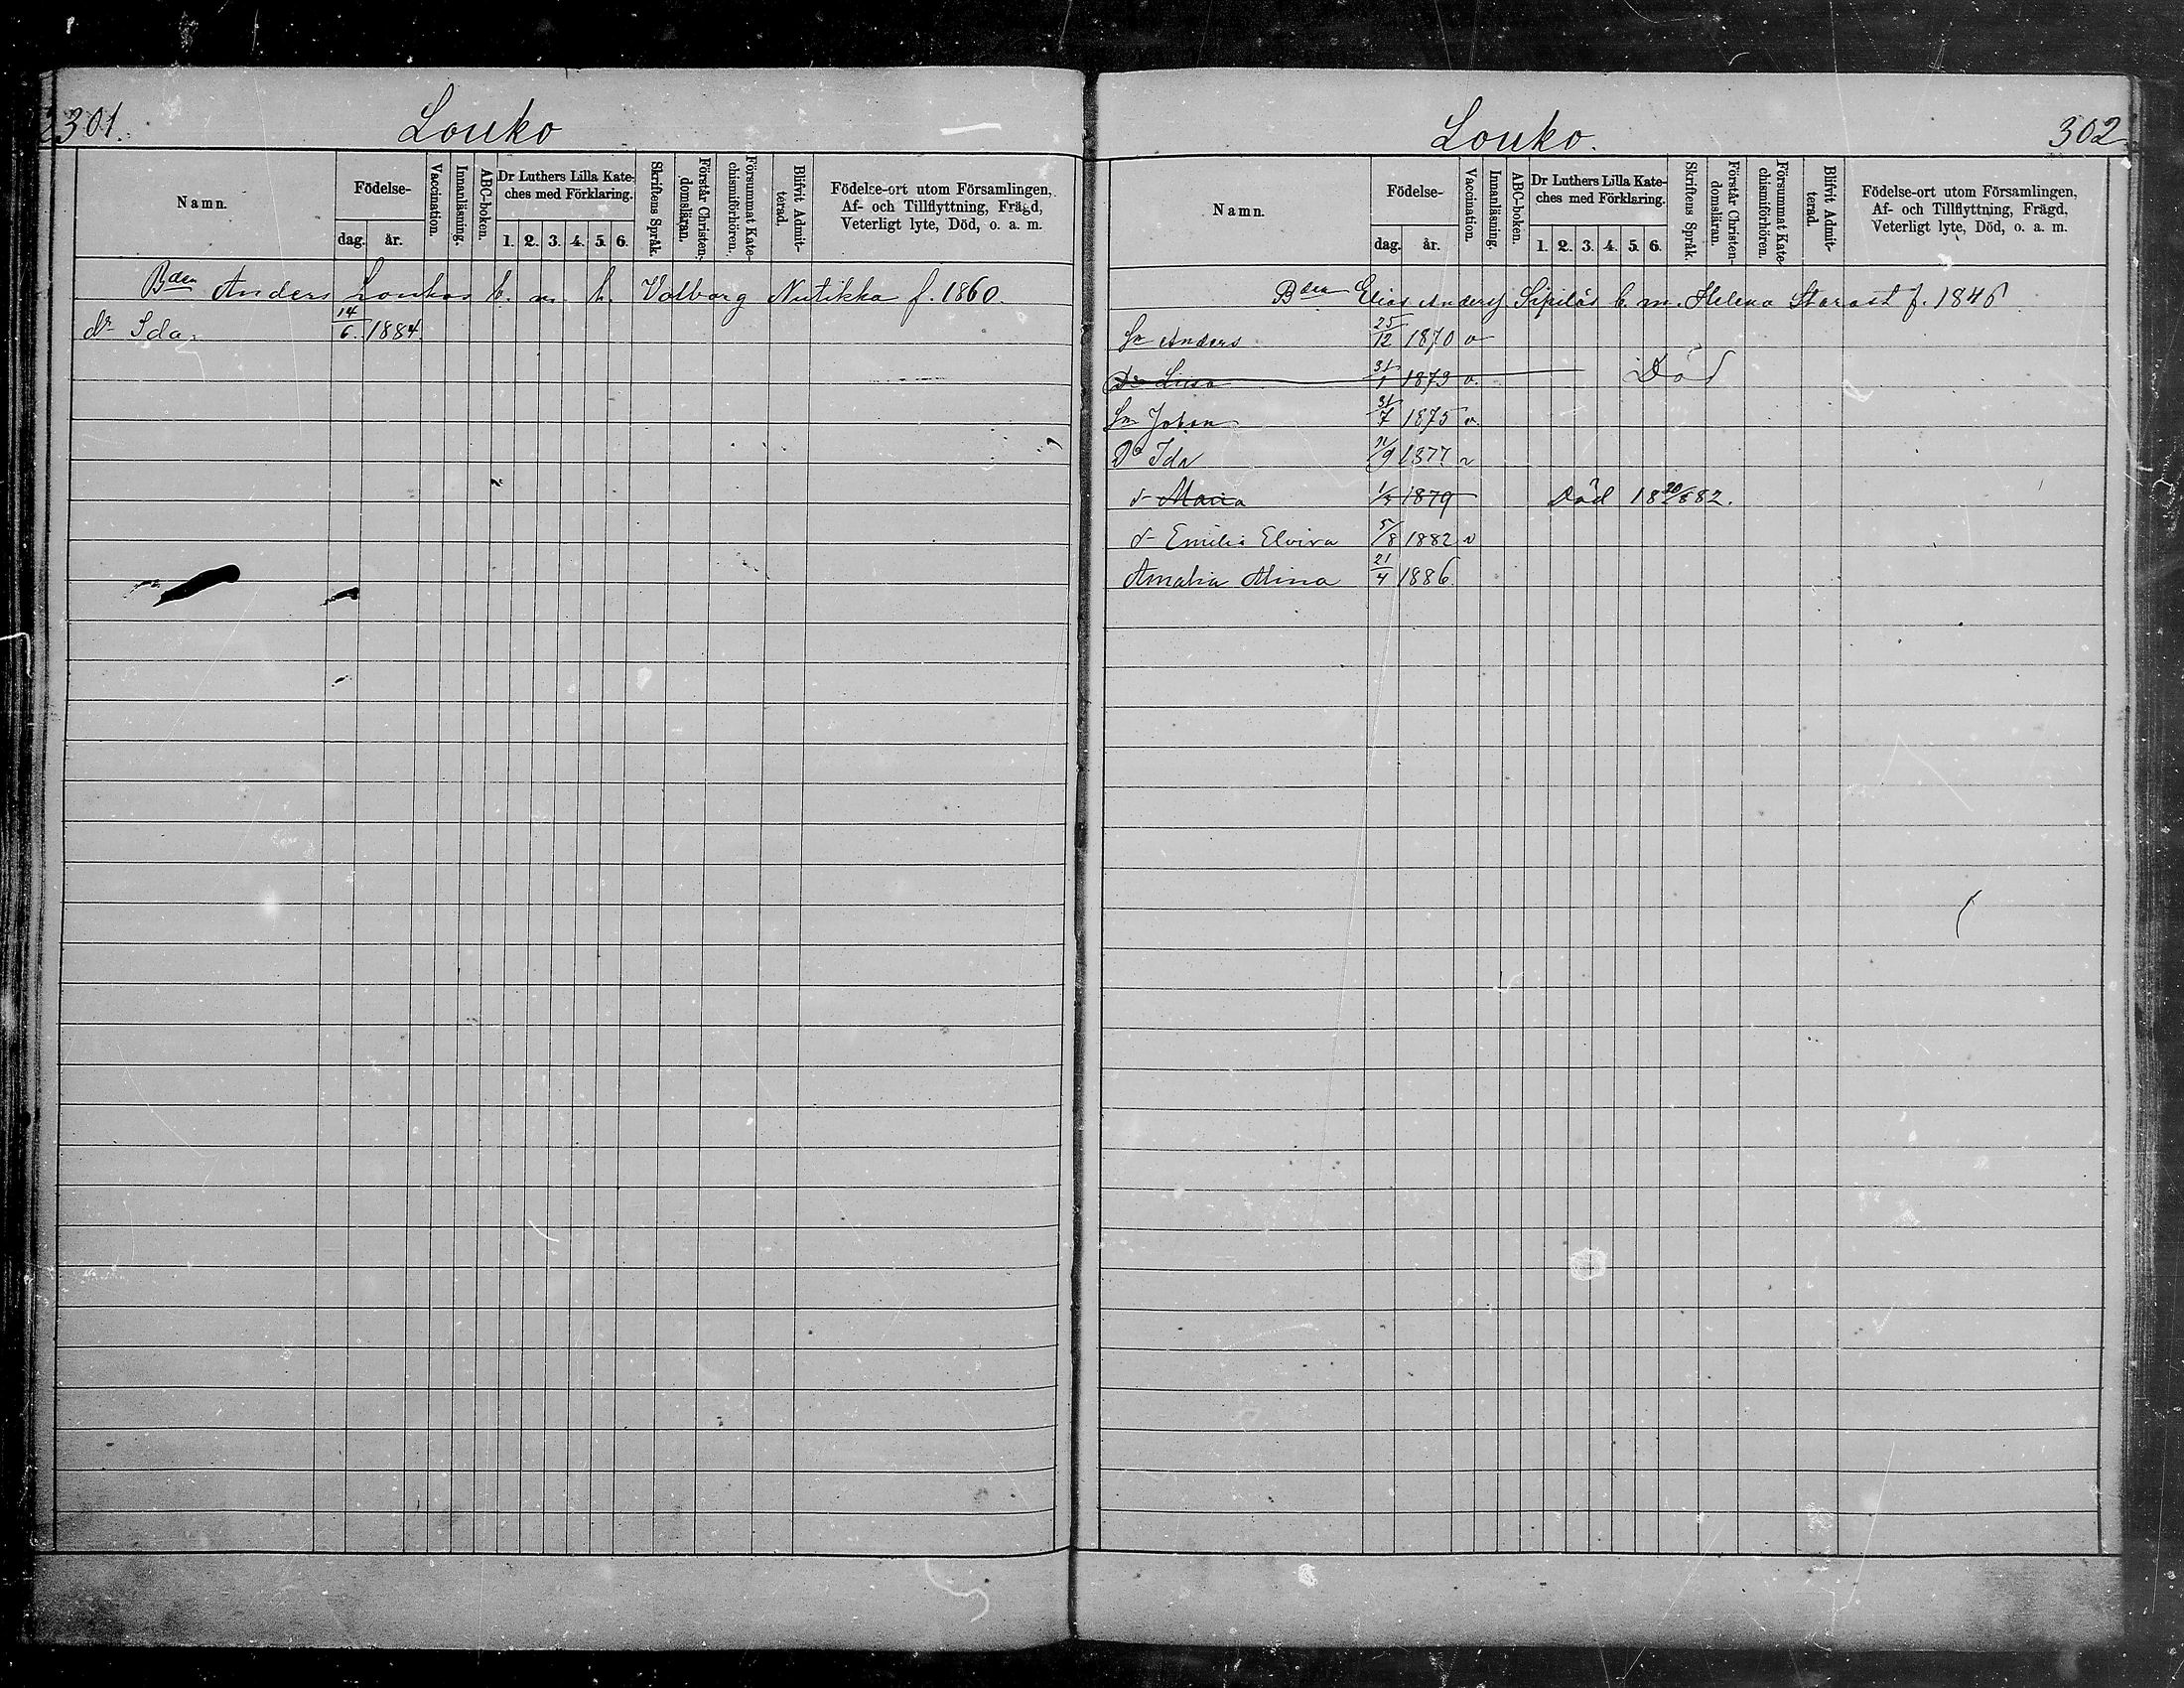 301.
Louko
Namn.
Födelse-
dag.
år.
Vaccination.
Innanläsning.
ABC-boken.
Dr Luthers Lilla Kate-
ches med Förklaring.
1. 2. 3. 4. 5. 6.
Skriftens Språk.
Förstår Christen-
domsläran.
Försummat Kate-
chismiförhören.
Blifvit Admit-
terad.
Födelse-ort utom Församlingen,
Af- och Tillflyttning, Frägd,
Veterligt lyte, Död, o. a. m.
Bden Anders Loukos b. m. h. Valborg Nutikka f. 1860.
dr Ida 14/6. 1884.
Louko.
302
Namn.
Födelse-
dag.
år.
Vaccination.
Innanläsning.
ABC-boken.
Dr Luthers Lilla Kate-
ches med Förklaring.
1. 2. 3. 4. 5. 6.
Skriftens Språk.
Förstår Christen-
domsläran.
Försummat Kate-
chismiförhören.
Blifvit Admit-
terad.
Födelse-ort utom Församlingen,
Af- och Tillflyttning, Frägd,
Veterligt lyte, Död, o. a. m.
Bden Elias Anders Sipiläs b. m. Helena Starast f. 1846
Sn Anders 25/12 1870 v
Dr Lisa 31/1 1873 v. Död
Sn Johan 31/7 1875 v.
Dr Ida /9 1877 v
d Maria 1879 Död 18 20/8 82.
d Emilia Elvira 5/8 1882 v
Amalia Alina 21/4 1886.